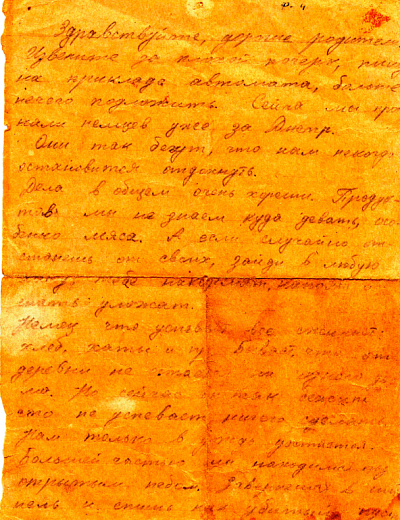 Здравствуйте, дорогие родители
Извените за плохой почерк, пишу
на прикладе автомата, больше
нечего подложить. Сейча мы про
нали немцев уже за Днепр.
Они так бегут, что нам некогда
остановится отдохнуть.
Дела в общем очень хороши. Продук-
тов мы не знаем куда девать, осо
бенно мяса. А если случайно от-
станешь от своих, зайди в любую
хату тебе накормят, напоят и
спать уложат.
Немец что успевает все сжигает:
хлеб, хаты и
деревни не
ма. Но сейчас он так
что не успевает ничего сделать.
Нам только в
Большей частью мы находимся под
открытым небом. Завернешся в ши
нель и спишь как убитый